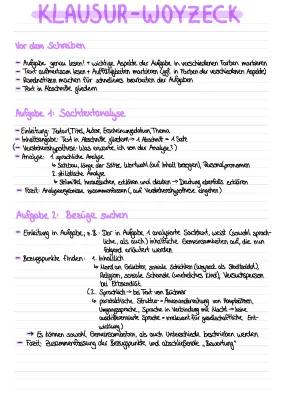 KLAUSUR-WOYZECK
Vor dem Schreiben
- Aufgabe genau lesen! + wichtige Aspekte der Aufgabe in verschiedenen Farben markieren
- Text aufmerksam lesen + Auffälligkeiten markieren (ggf. in Farben der verschiedenen Aspekte)
- Randnotizen machen für schnelleres bearbeiten der Aufgaben
- Text in Abschnitte gliedern
Aufgabe 1: Sachtextanalyse
- Einleitung: Textart, Titel, Autor, Erscheinungsdatum, Thema
- Inhaltsangabe: Text in Abschnitte gliedern → 1 Abschnitt = 1 Satz
(- Verstehenshypothese: Was erwarte ich von der Analyse?)
- Analyse: 1. sprachliche Analyse
↳ Satzbau, länge der Sätze, Wortwahl (auf Inhalt bezogen), Personalpronomen
2. stilistische Analyse
↳ Stilmittel heraussuchen, erklären und deuten → Deutung ebenfalls erklären
- Fazit: Analyseergebnisse zusammenfassen (, auf Verstehenshypothese eingehen)
Aufgabe 2: Bezüge suchen
- Einleitung in Aufgabe, z.B.: Der in Aufgabe 1 analysierte Sachtext, weist (sowohl sprach-
liche, als auch) inhaltliche Gemeinsamkeiten auf, die nun
folgend erläutert werden
- Bezugspunkte finden: 1. Inhaltlich
↳ Mord an Geliebter, soziale Schichten (Woyzeck als Stadtsoldat),
Religion, soziale Schande (uneheliches Kind), Versuchsperson
bei Erbsendiät
(2. Sprachlich → bei Text von Büchner
↳ parataktische Struktur = Aneinanderreihung von Hauptsätzen,
Umgangssprache, Sprache in Verbindung mit Macht → keine
ausdifferenzierte Sprache = irrelevant für gesellschaftliche Ent-
wicklung)
→ Es können sowohl Gemeinsamkeiten, als auch Unterschiede beschrieben werden
- Fazit: Zusammenfassung der Bezugspunkte und abschließende „Bewertung"